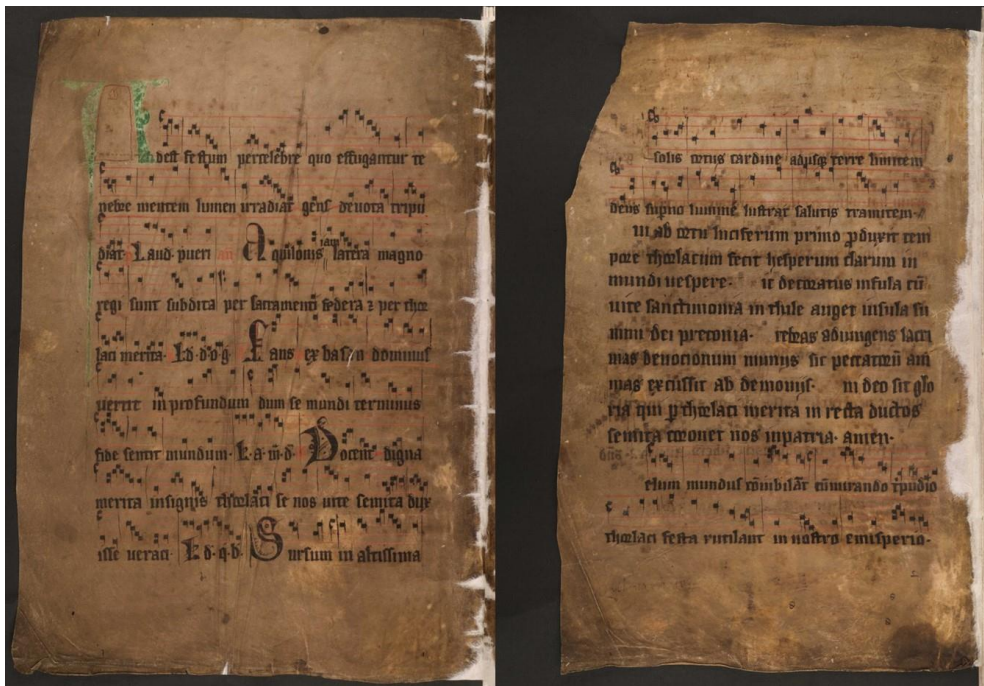 Adest festum percelebre quo effugantur te
nebre mentem lumen irradiat gens devota tripu
diat. Laud. pueri an Aquilonis jam latera magno
regi sunt subdita per sacramenti federa ⁊ per thor
laci merita. Ld. d'o'g. Fans ex basan dominus
vertit in profundum dum se mundi terminus
fide sentit mundum. L. a. m. d. Docent digna
merita insignis thorlaci se nos vite semita dux
isse veraci. L. d. q. b. Sursum in altissima
solis ortus cardine adusque terre limitem
deus superno lumine lustrat salutis tramitem.
in ab ortu luciferum primo produxit tem
pore thorlacum fecit hesperum clarum in
mundi vespere. ic decoratus infula cū
vite sanctimonia in thile auget insula sū
mini dei preconia. adiungens lacri
mas devocionum muniis sic peccatorū ani
mas excussit ab demoniis. in deo sit glo
ria qui p thorlaci merita in recta ductos
semita coronet nos in patria. amen.
elum mundus rīpudio
thorlaci festa rutilant in nostro emisperio.